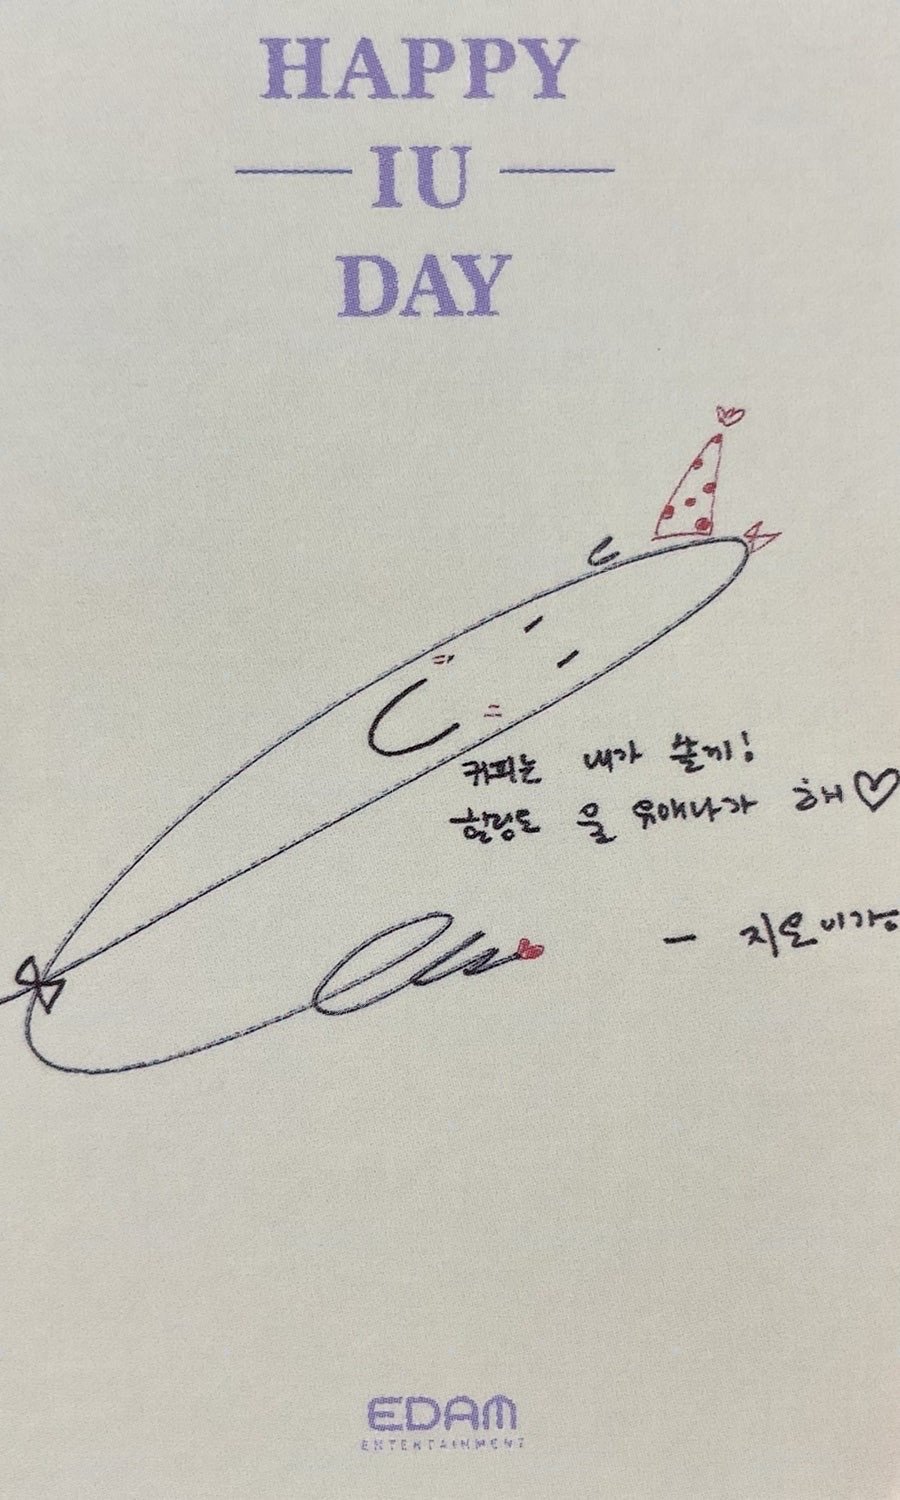 HAPPY
IU
DAY
커피는 내가 쏠께!
힐링도 울 유애나가 해♡
EDAM
ENTERTAINMENT